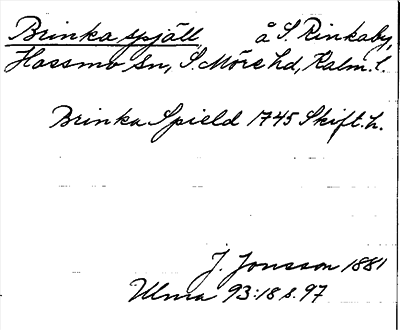 Brinka spjäll å S. Rinkaby,
Hossmo Sn, S. Möre hd, Kalm. l.
Brinka Spield 1745 Skift. h.
J. Jonsson 1881
Ulma 93:18 s. 97